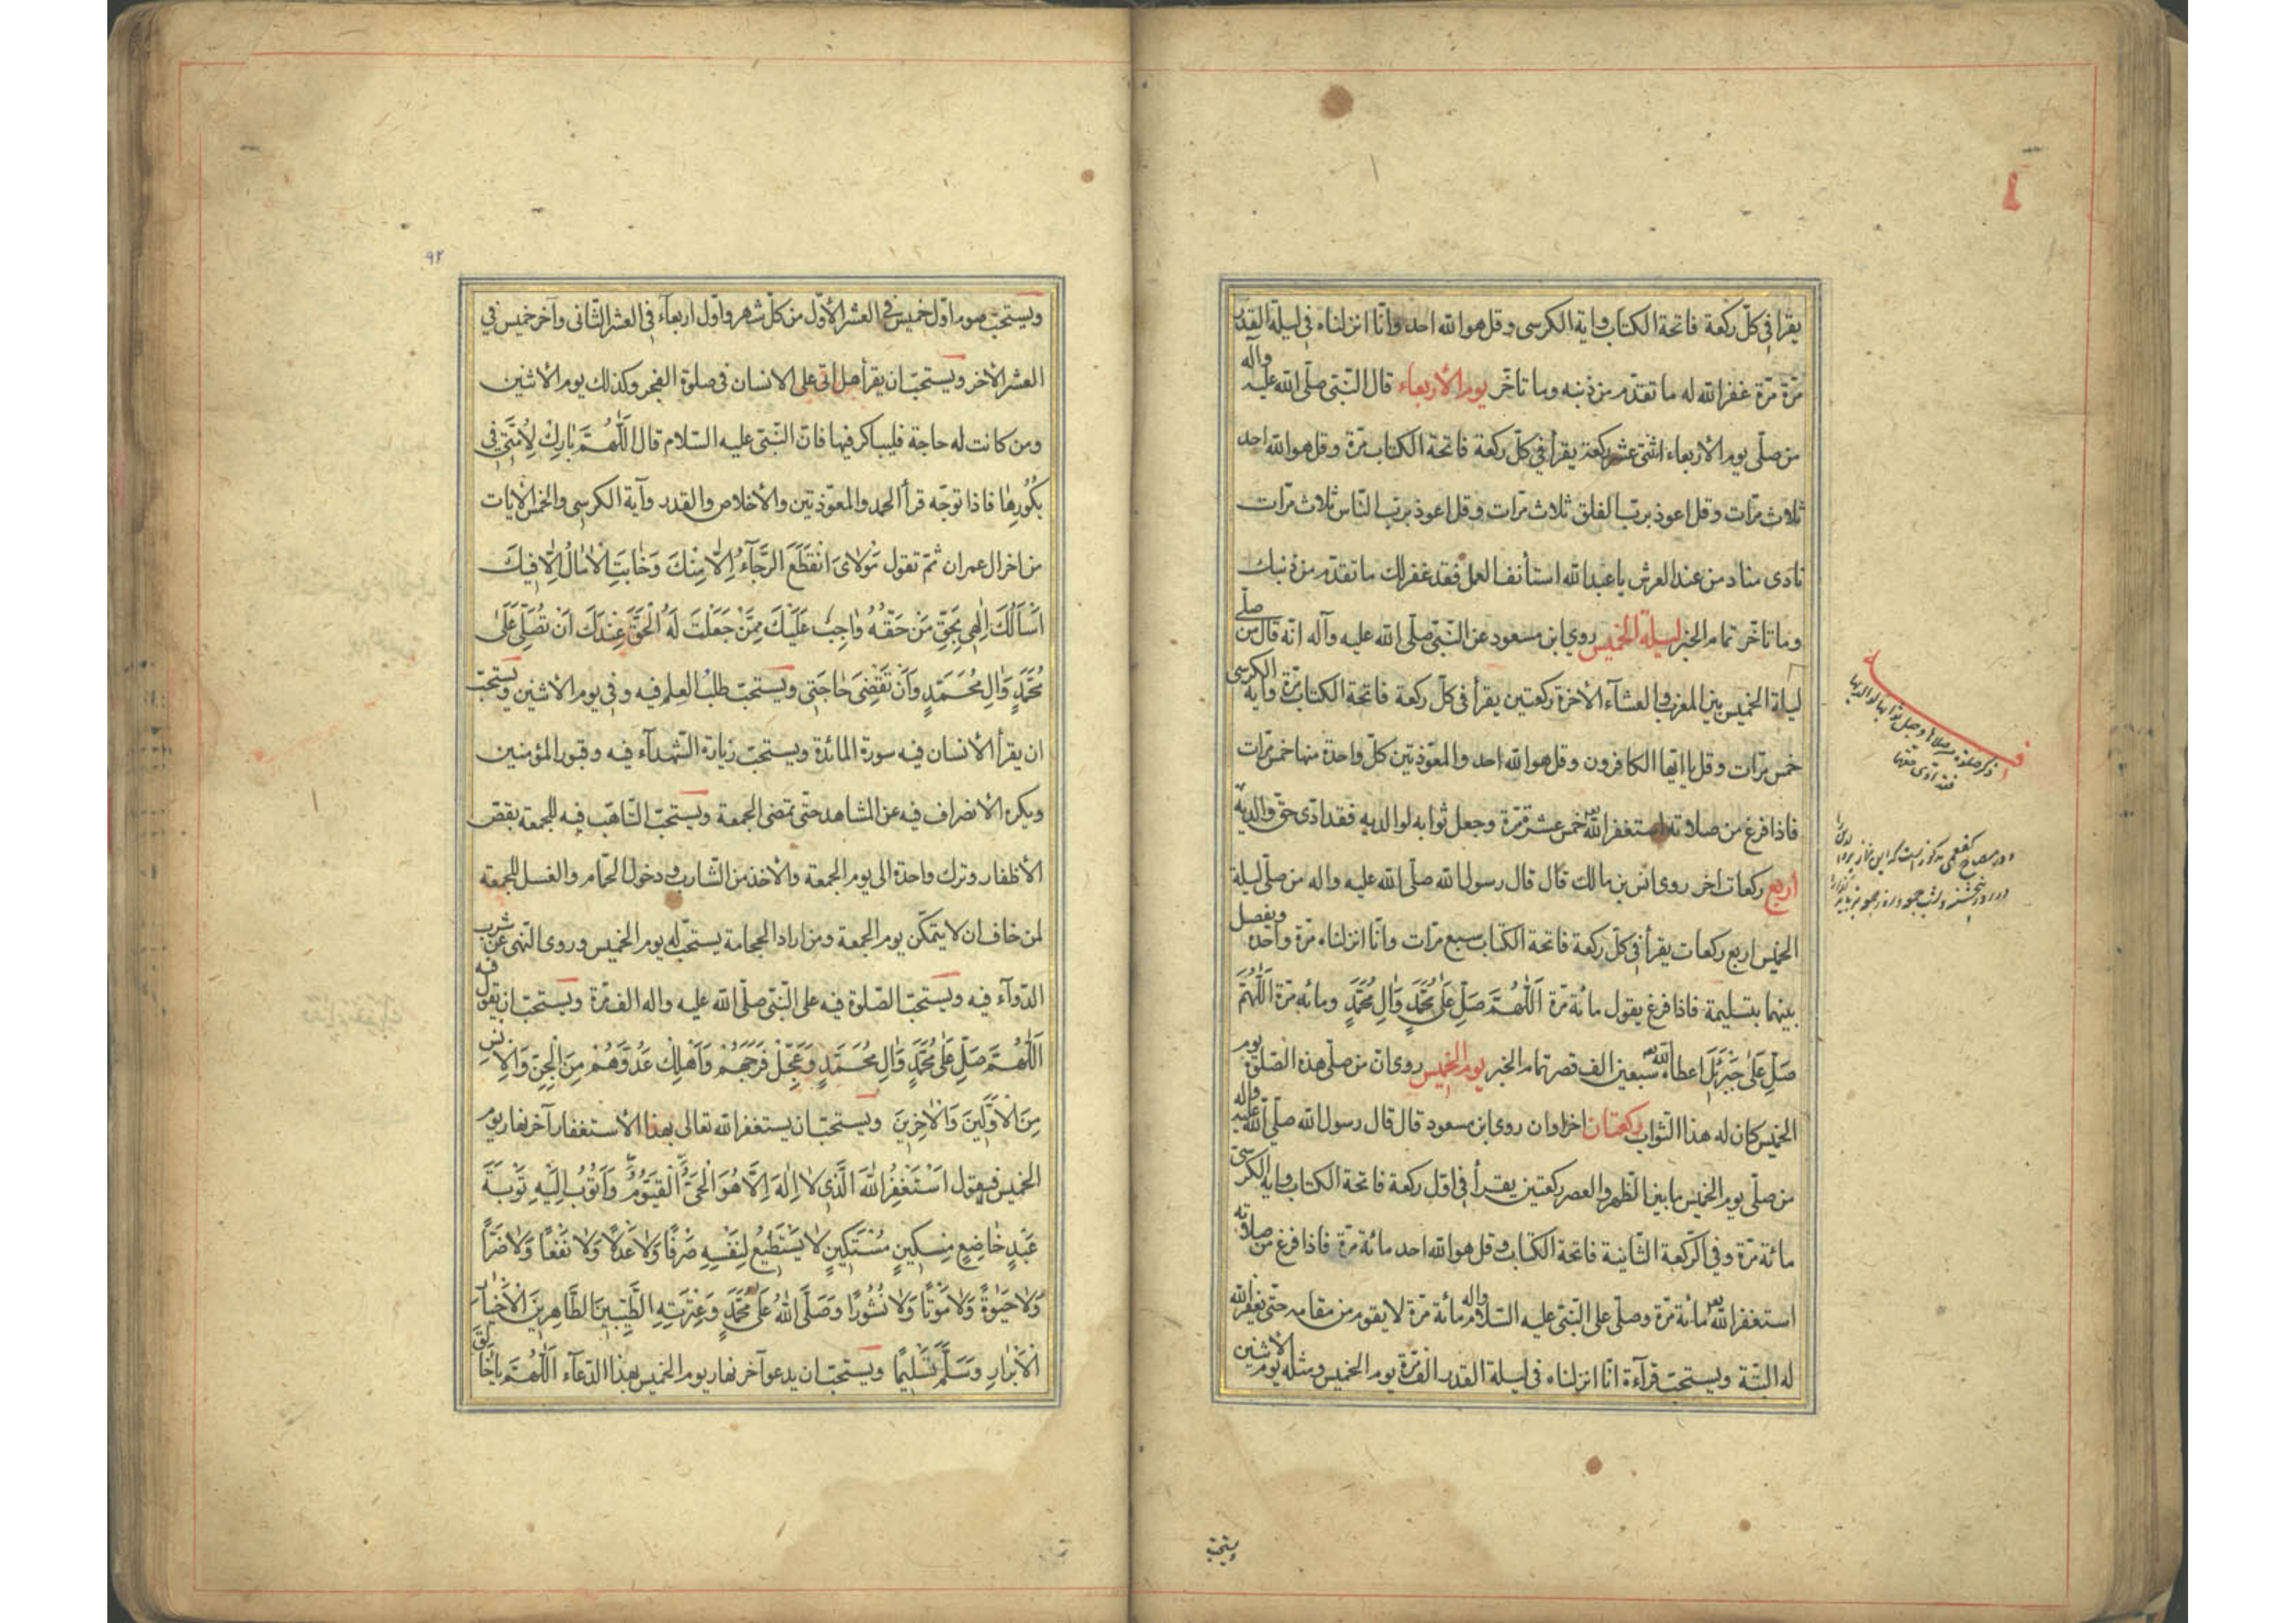 يقرأ في كلّ ركعة فاتحة الكتاب واية الكرسى وقل هو الله احد وانّا انزلناه في ليلة القدر
مرّة مرّة غفر الله له ما تقدّم من ذنبه وما تاخّر يوم الأربعاء قال النّبىّ صلّى الله عليه وآله
من صلّى يوم الأربعاء اثنتى عشر ركعة يقرأ في كلّ ركعة فاتحة الكتاب مرّة وقل هو الله احد
ثلاث مرّات وقل اعوذ بربّ الفلق ثلاث مرّات وقل اعوذ بربّ النّاس ثلاث مرّات
نادى مناد من عند العرش يا عبد الله استأنف العمل فقد غفر لك ما تقدّم من ذنبك
وما تاخّر تمام الخبر ليلة الخميس روى ابن مسعود عن النّبىّ صلّى الله عليه وآله انّه قال من صلّى
ليلة الخميس بين المغرب والعشآء الأخرة ركعتين يقرأ في كلّ ركعة فاتحة الكتاب مرّة وآية الكرسى
خمس مرّات وقل يا ايّها الكافرون وقل هو الله احد والمعوّذتين كلّ واحدة منها خمس مرّات
فاذا فرغ من صلاته استغفر الله خمس عشرة مرّة وجعل ثوابه لوالديه فقد ادّى حقّ والديه
اربع ركعات اخر روى انس بن مالك قال قال رسول الله صلّى الله عليه واله من صلّى ليلة
الخميس اربع ركعات يقرأ في كلّ ركعة فاتحة الكتاب سبع مرّات وانّا انزلناه مرّة واحدة ويفصل
بينهما بتسليمة فاذا فرغ يقول مائة مرّة اَللّٰهُمَّ صَلِّ عَلىٰ مُحَمَّدٍ وَاٰلِ مُحَمَّدٍ ومائة مرّة اَللّٰهُمَّ
صَلِّ عَلىٰ جَبْرَئيلَ اعطاه الله سبعين الف قصر تمام الخبر يوم الخميس روى انّ من صلّى هذه الصّلوة يوم
الخميس كان له هذا الثواب ركعتان اخراوان روى ابن مسعود قال قال رسول الله صلّى الله عليه وآله
من صلّى يوم الخميس ما بين الظّهر والعصر ركعتين يقرأ في اوّل ركعة فاتحة الكتاب واية الكرسىّ
مائة مرّة وفي الرّكعة الثّانية فاتحة الكتاب وقل هو الله احد مائة مرّة فاذا فرغ من صلاته
استغفر الله مائة مرّة وصلّى على النّبىّ عليه السّلام وآله مائة مرّة لا يقوم من مقامه حتّى يغفر الله
له البتّة ويستحبّ قرآءة انّا انزلناه في ليلة القدر الف مرّة يوم الخميس ومثله يوم الاثنين
ذكر صلوة من صلاها وجعل ثوابها لوالديه
فقد ادّى حقّهما
ويستحبّ
٩٢
ويستحبّ صوم اوّل خميس في العشر الأوّل من كلّ شهر واوّل اربعاء في العشر الثّانى وآخر خميس في
العشر الأخر ويستحبّ ان يقرأ هل اتى على الانسان في صلوة الفجر وكذلك يوم الاثنين
ومن كانت له حاجة فليباكر فيها فانّ النّبىّ عليه السّلام قال اَللّٰهُمَّ بٰارِكْ لِاُمَّتى فى
بُكُورِهٰا فاذا توجّه قرأ الحمد والمعوّذتين والأخلاص والقدر وآية الكرسى والخمس الآيات
من اخر ال عمران ثمّ تقول مَوْلاٰىَ انْقَطَعَ الرَّجٰآءُ اِلّٰا مِنْكَ وَخٰابَتِ الْاٰمٰالُ اِلّٰا فيكَ
اَسْأَلُكَ اِلٰهى بِحَقِّ مَنْ حَقُّهُ وٰاجِبٌ عَلَيْكَ مِمَّنْ جَعَلْتَ لَهُ الْحَقَّ عِنْدَكَ اَنْ تُصَلِّىَ عَلىٰ
مُحَمَّدٍ وَاٰلِ مُحَمَّدٍ وَاَنْ تَقْضِىَ حٰاجَتى ويستحبّ طلب العلم فيه وفى يوم الاثنين ويستحبّ
ان يقرأ الأنسان فيه سورة المائدة ويستحبّ زيارة الشّهدآء فيه وقبور المؤمنين
ويكره الانصراف فيه عن المشاهد حتّى تمضى الجمعة ويستحبّ التّاهّب فيه للجمعة بقصّ
الأظفار وترك واحدة الى يوم الجمعة والأخذ من الشّارب ودخول الحمّام والغسل للجمعة
لمن خاف ان لا يتمكّن يوم الجمعة ومن اراد الحجامة يستحبّ له يوم الخميس وروى النّهى عن شرب
الدّوآء فيه ويستحبّ الصّلوة فيه على النّبىّ صلّى الله عليه واله الف مرّة ويستحبّ ان يقول فيه
اَللّٰهُمَّ صَلِّ عَلىٰ مُحَمَّدٍ وَاٰلِ مُحَمَّدٍ وَعَجِّلْ فَرَجَهُمْ وَاَهْلِكْ عَدُوَّهُمْ مِنَ الْجِنِّ وَالْاِنْسِ
مِنَ الْاَوَّلينَ وَالْاٰخِرينَ ويستحبّ ان يستغفر الله تعالى بهذا الأستغفار آخر نهار يوم
الخميس فيقول اَسْتَغْفِرُ اللهَ الَّذى لاٰ اِلٰهَ اِلَّا هُوَ الْحَىُّ الْقَيُّومُ وَاَتُوبُ اِلَيْهِ تَوْبَةَ
عَبْدٍ خٰاضِعٍ مِسْكينٍ مُسْتَكينٍ لاٰ يَسْتَطيعُ لِنَفْسِهِ صَرْفًا وَلاٰ عَدْلًا وَلاٰ نَفْعًا وَلاٰ ضَرًّا
وَلاٰ حَيٰوةً وَلاٰ مَوْتًا وَلاٰ نُشُورًا وَصَلَّى اللهُ عَلىٰ مُحَمَّدٍ وَعِتْرَتِهِ الطَّيِّبينَ الطّٰاهِرينَ الْاَخْيٰارِ
الْاَبْرٰارِ وَسَلَّمَ تَسْليمًا ويستحبّ ان يدعو آخر نهار يوم الخميس بهذا الدّعآء اَللّٰهُمَّ يٰا خٰالِقَ